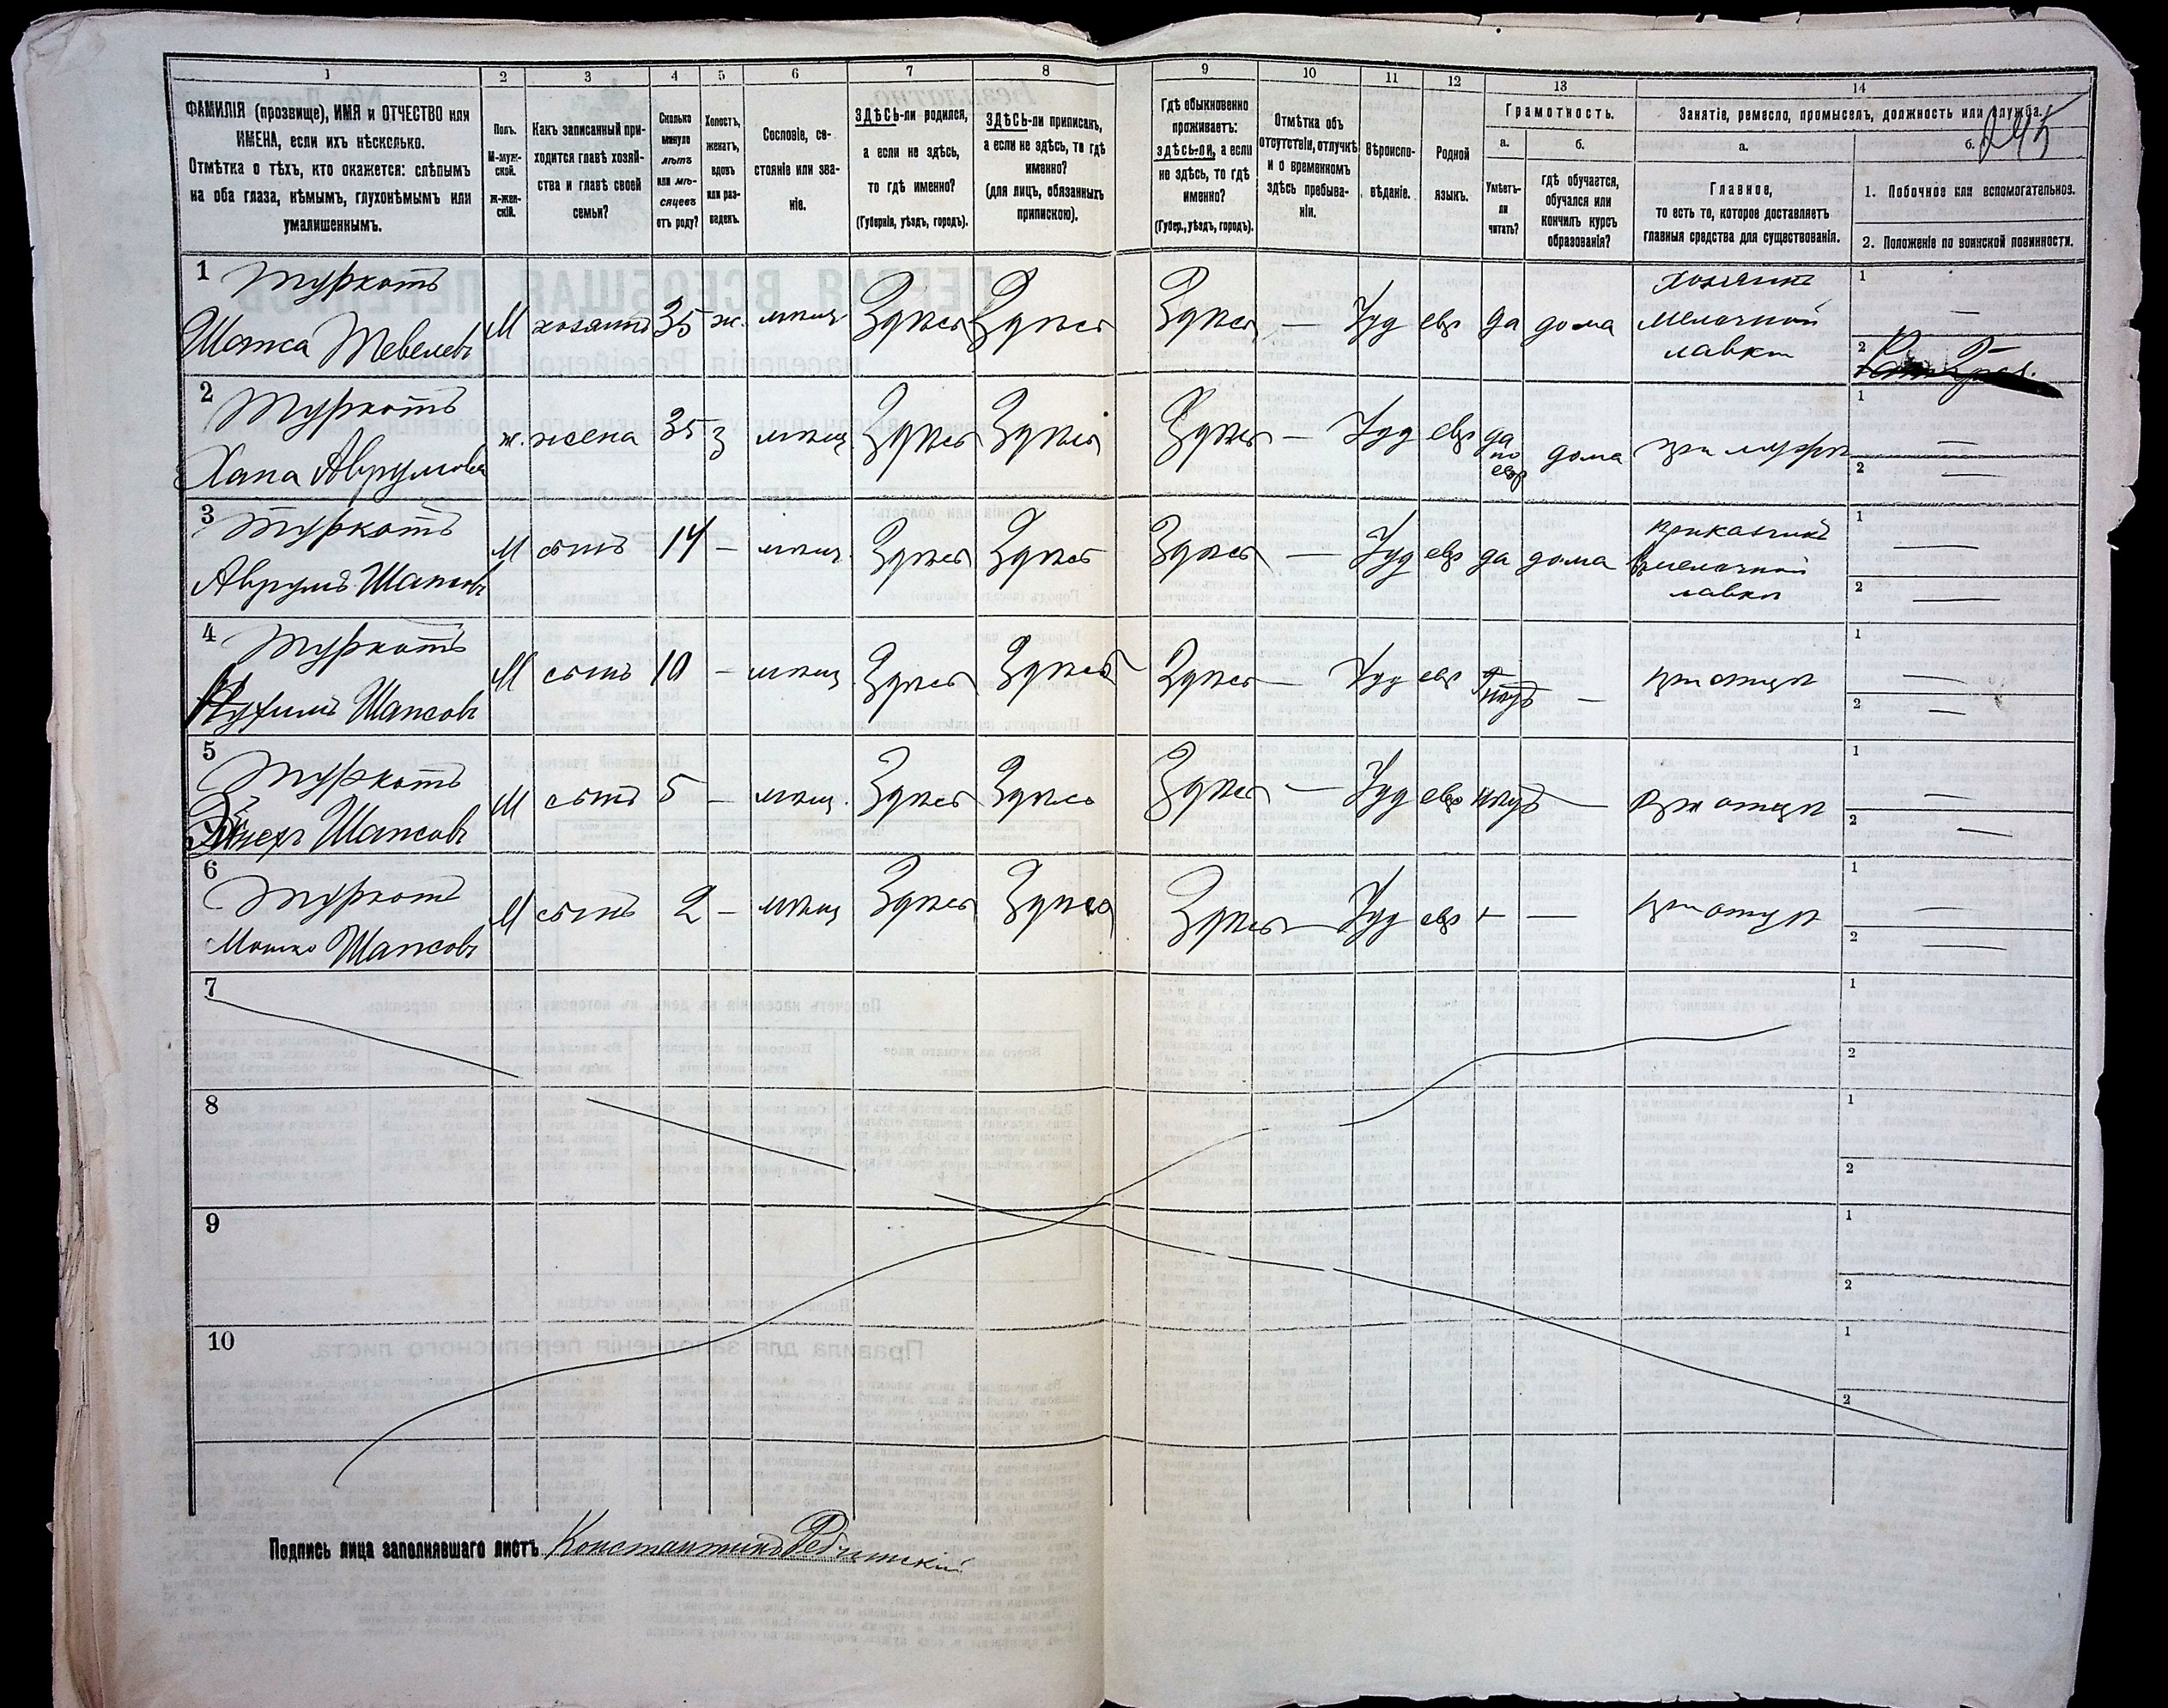 1 2 3 4 5 6 7 8 9 10 11 12 13 14
ФАМИЛІЯ (прозвище), ИМЯ и ОТЧЕСТВО или
ИМЕНА, если ихъ нѣсколько.
Отмѣтка о тѣхъ, кто окажется: слѣпымъ
на оба глаза, нѣмымъ, глухонѣмымъ или
умалишеннымъ.
Полъ.
М-муж-
ской.
Ж-жен-
скій.
Какъ записанный при-
ходится главѣ хозяй-
ства и главѣ своей
семьи?
Сколько
минуло
лѣтъ
или мѣ-
сяцевъ
отъ роду?
Холостъ,
женатъ,
вдовъ
или раз-
веденъ.
Сословіе, со-
стояніе или зва-
ніе.
ЗДѢСЬ-ли родился,
а если не здѣсь,
то гдѣ именно?
(Губернія, уѣздъ, городъ).
ЗДѢСЬ-ли приписанъ,
а если не здѣсь, то гдѣ
именно?
(для лицъ, обязанныхъ
припискою).
Гдѣ обыкновенно
проживаетъ:
здѣсь-ли, а если
не здѣсь, то гдѣ
именно?
(Губер., уѣздъ, городъ).
Отмѣтка объ
отсутствіи, отлучкѣ
и о временномъ
здѣсь пребыва-
ніи.
Вѣроиспо-
вѣданіе.
Родной
языкъ.
Грамотность.
а.
Умѣетъ-
ли
читать?
б.
Гдѣ обучается,
обучался или
кончилъ курсъ
образованія?
Занятіе, ремесло, промыселъ, должность или служба.
а.
Главное,
то есть то, которое доставляетъ
главныя средства для существованія.
б.
1. Побочное или вспомогательное.
2. Положеніе по воинской повинности.
1 Туркотъ
Шапса Тевелевъ М хозяинъ 35 ж. мѣщ. Здѣсь Здѣсь Здѣсь — Іуд евр да дома
хозяинъ
мелочной
лавки
1 —
2
2 Туркотъ
Хана Аврумова ж. жена 35 з мѣщ. Здѣсь Здѣсь Здѣсь — Іуд евр да
по
евр
дома при мужѣ
1 —
2 —
3 Туркотъ
Аврумъ Шапсовъ М сынъ 14 — мѣщ. Здѣсь Здѣсь Здѣсь — Іуд евр да дома
приказчикъ
въ мелочной
лавки
1 —
2 —
4 Туркотъ
Шапсовъ М сынъ 10 — мѣщ. Здѣсь Здѣсь Здѣсь — Іуд евр нѣтъ — при отцѣ
1 —
2 —
5 Туркотъ
Шапсовъ М сынъ 5 — мѣщ. Здѣсь Здѣсь Здѣсь — Іуд евр нѣтъ — при отцѣ
1 —
2 —
6 Туркотъ
Мошко Шапсовъ М сынъ 2 — мѣщ Здѣсь Здѣсь Здѣсь — Іуд евр — — при отцѣ
1 —
2 —
7 1
2
8 1
2
9 1
2
10 1
2
Подпись лица заполнявшаго листъ Константинъ